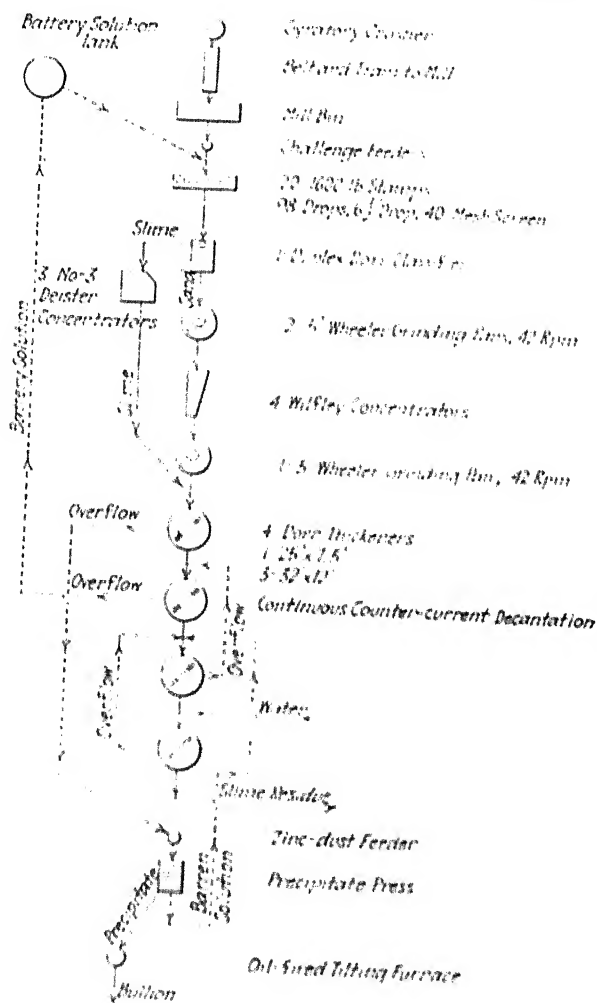 Battery Solution
Tank
Gyratory Crusher
Belt and Tram to Mill
Mill Bin
Challenge Feeders
20-1600 lb Stamps
98 Drops, 6½" Drop, 40-Mesh Screen
Slime
1-Duplex Dorr Classifier
3 No-3
Deister
Concentrators
Sand
2-5' Wheeler Grinding Pans, 42 Rpm
Battery Solution
Slime
4 Wilfley Concentrators
1-5' Wheeler Grinding Pan, 42 Rpm
Overflow
4 Dorr Thickeners
Overflow
Continuous Counter-current Decantation
Overflow
Overflow
Water
Slime Residue
Zinc-dust Feeder
Precipitate
Barren
Solution
Precipitate Press
Oil-Fired Tilting Furnace
Bullion